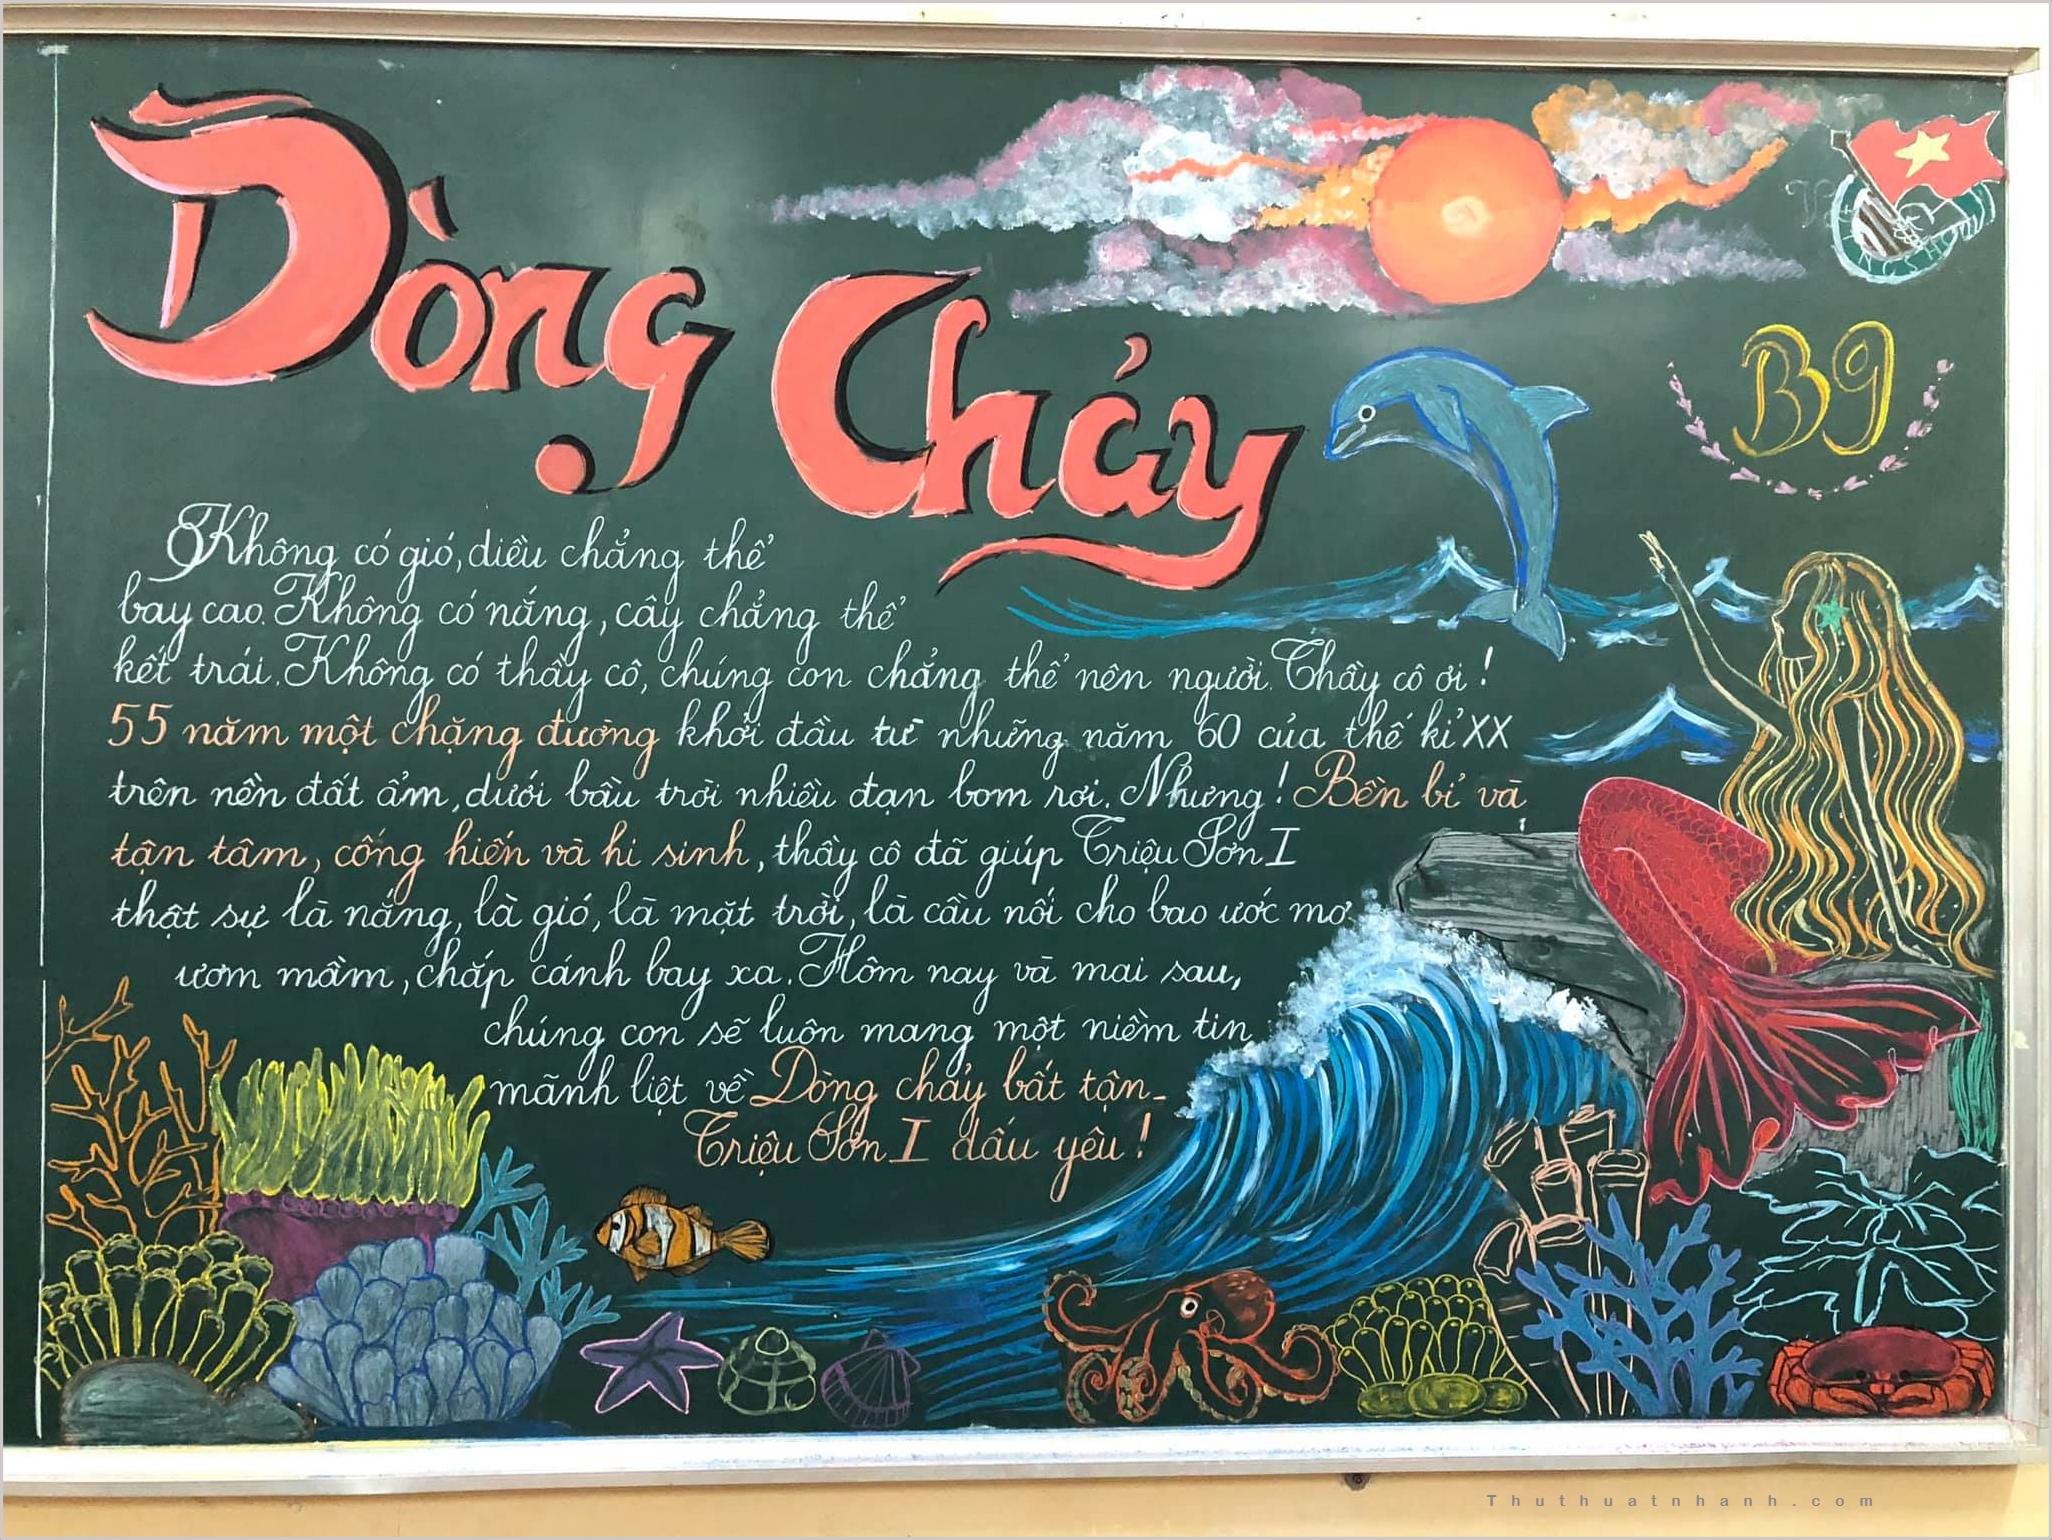 Dòng Chảy
B9
Không có gió, diều chẳng thể
bay cao. Không có nắng, cây chẳng thể
kết trái. Không có thầy cô, chúng con chẳng thể nên người. Thầy cô ơi!
55 năm một chặng đường khởi đầu từ những năm 60 của thế kỉ XX
trên nền đất ẩm, dưới bầu trời nhiều đạn bom rơi. Nhưng! Bền bỉ và
tận tâm, cống hiến và hi sinh, thầy cô đã giúp Triệu Sơn I
thật sự là nắng, là gió, là mặt trời, là cầu nối cho bao ước mơ
ươm mầm, chắp cánh bay xa. Hôm nay và mai sau,
chúng con sẽ luôn mang một niềm tin
mãnh liệt về Dòng chảy bất tận-
Triệu Sơn I dấu yêu!
Thuthuatnhanh.com